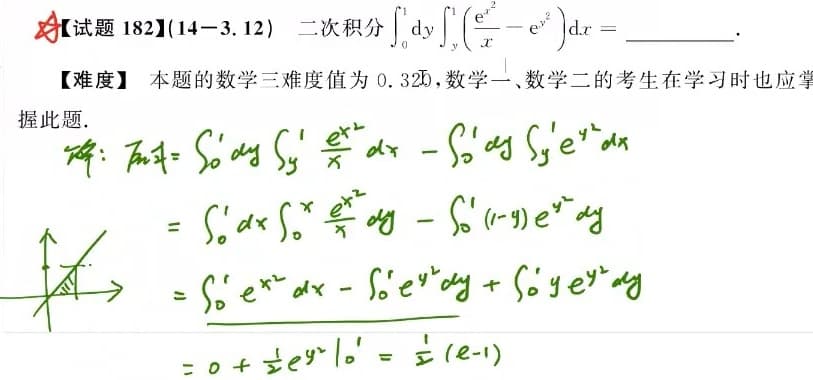 【试题 182】(14-3. 12) 二次积分∫₀¹dy∫_y¹(e^{x²}/x - e^{y²})dx = ________.
【难度】 本题的数学三难度值为 0. 320,数学一、数学二的考生在学习时也应掌
握此题.
解: 原式= ∫₀¹ dy ∫_y¹ e^{x²}/x dx - ∫₀¹ dy ∫_y¹ e^{y²} dx
= ∫₀¹ dx ∫₀^x e^{x²}/x dy - ∫₀¹ (1-y) e^{y²} dy
= ∫₀¹ e^{x²} dx - ∫₀¹ e^{y²} dy + ∫₀¹ y e^{y²} dy
= 0 + 1/2 e^{y²} |₀¹ = 1/2 (e-1)